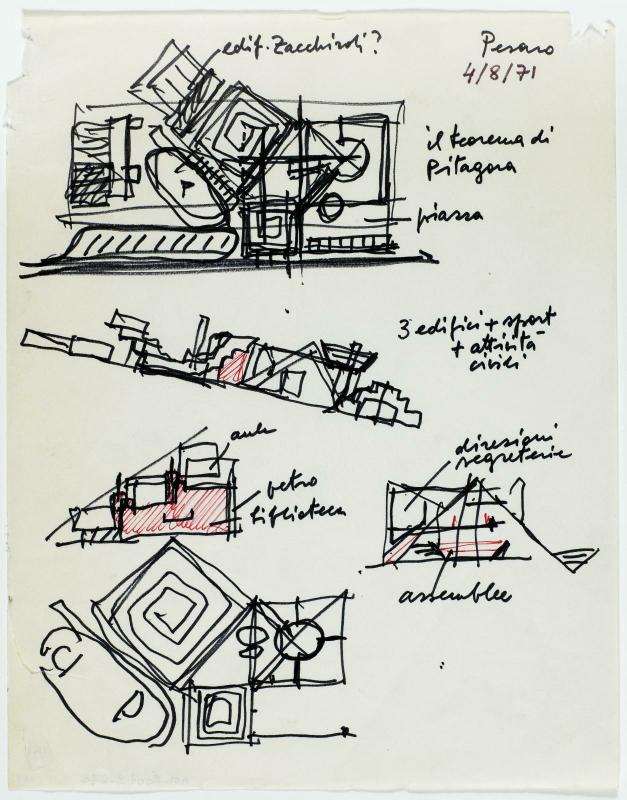 edif. Zacchiroli?
Pesaro
4/8/71
il teorema di
Pitagora
P
piazza
3 edifici + sport
+ attività
civili
aule
vetro
biblioteca
direzioni
segreterie
assemblee
P